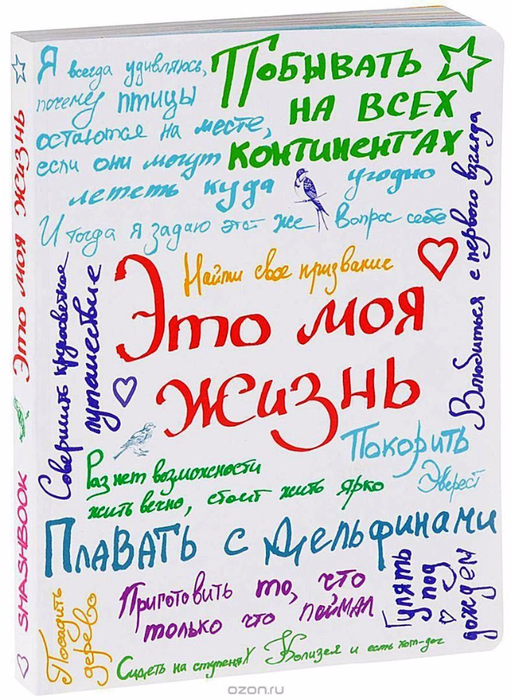 Я всегда удивляюсь,
почему птицы
остаются на месте,
если они могут
лететь куда угодно
И тогда я задаю этот же вопрос себе
Побывать
на всех
континентах
Найти свое призвание
Это моя
жизнь
Совершить кругосветное
путешествие
Влюбиться с первого взгляда
Покорить
Эверест
Раз нет возможности
жить вечно, стоит жить ярко
Плавать с дельфинами
Посадить
дерево
Приготовить то, что
только что поймал
Гулять
под
дождем
Сидеть на ступенях Колизея и есть хот-дог
Это моя жизнь
SMASHBOOK
ozon.ru